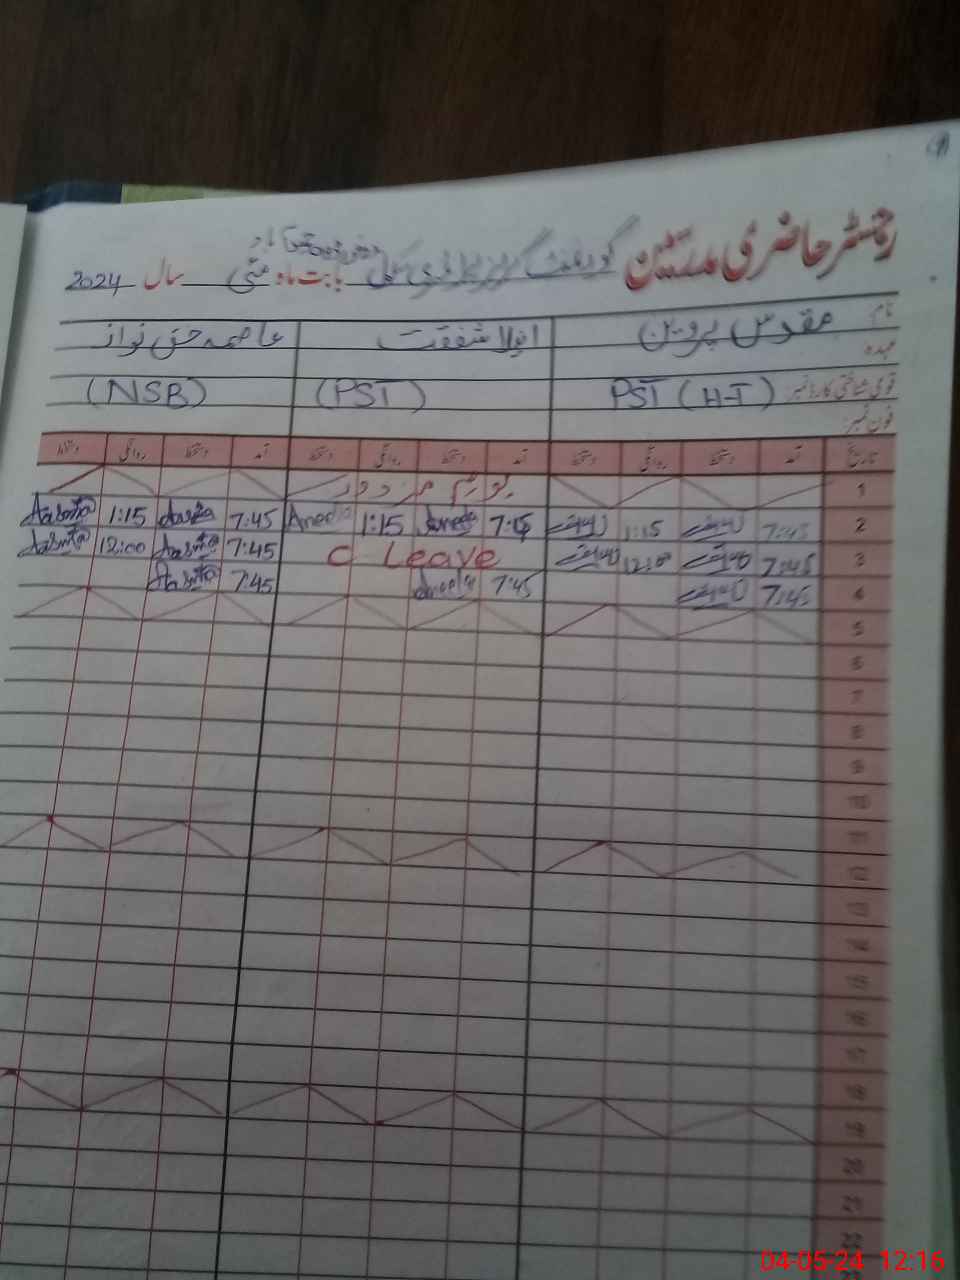 رجسٹر حاضری مدرسین گورنمنٹ گرلز پرائمری سکول
بابت ماہ مئی سال 2024
نام عاصمہ حق نواز انیلا شفقت مقدس پروین
عہدہ
قومی شناختی کارڈ نمبر PST (H-T) (PST) (NSB)
فون نمبر
تاریخ آمد دستخط روانگی دستخط آمد دستخط روانگی دستخط آمد دستخط روانگی دستخط
1 یوم مزدور
2 7:45 1:15 7:45 Aneela 1:15 Aneela 7:45 Aasma 1:15 Aasma
3 7:45 12:00 C Leave 7:45 Aasma 12:00 Aasma
4 7:45 7:45 Aneela 7:45 Aasma
5
6
7
8
9
10
11
12
13
14
15
16
17
18
19
20
21
22
04-05-24 12:16